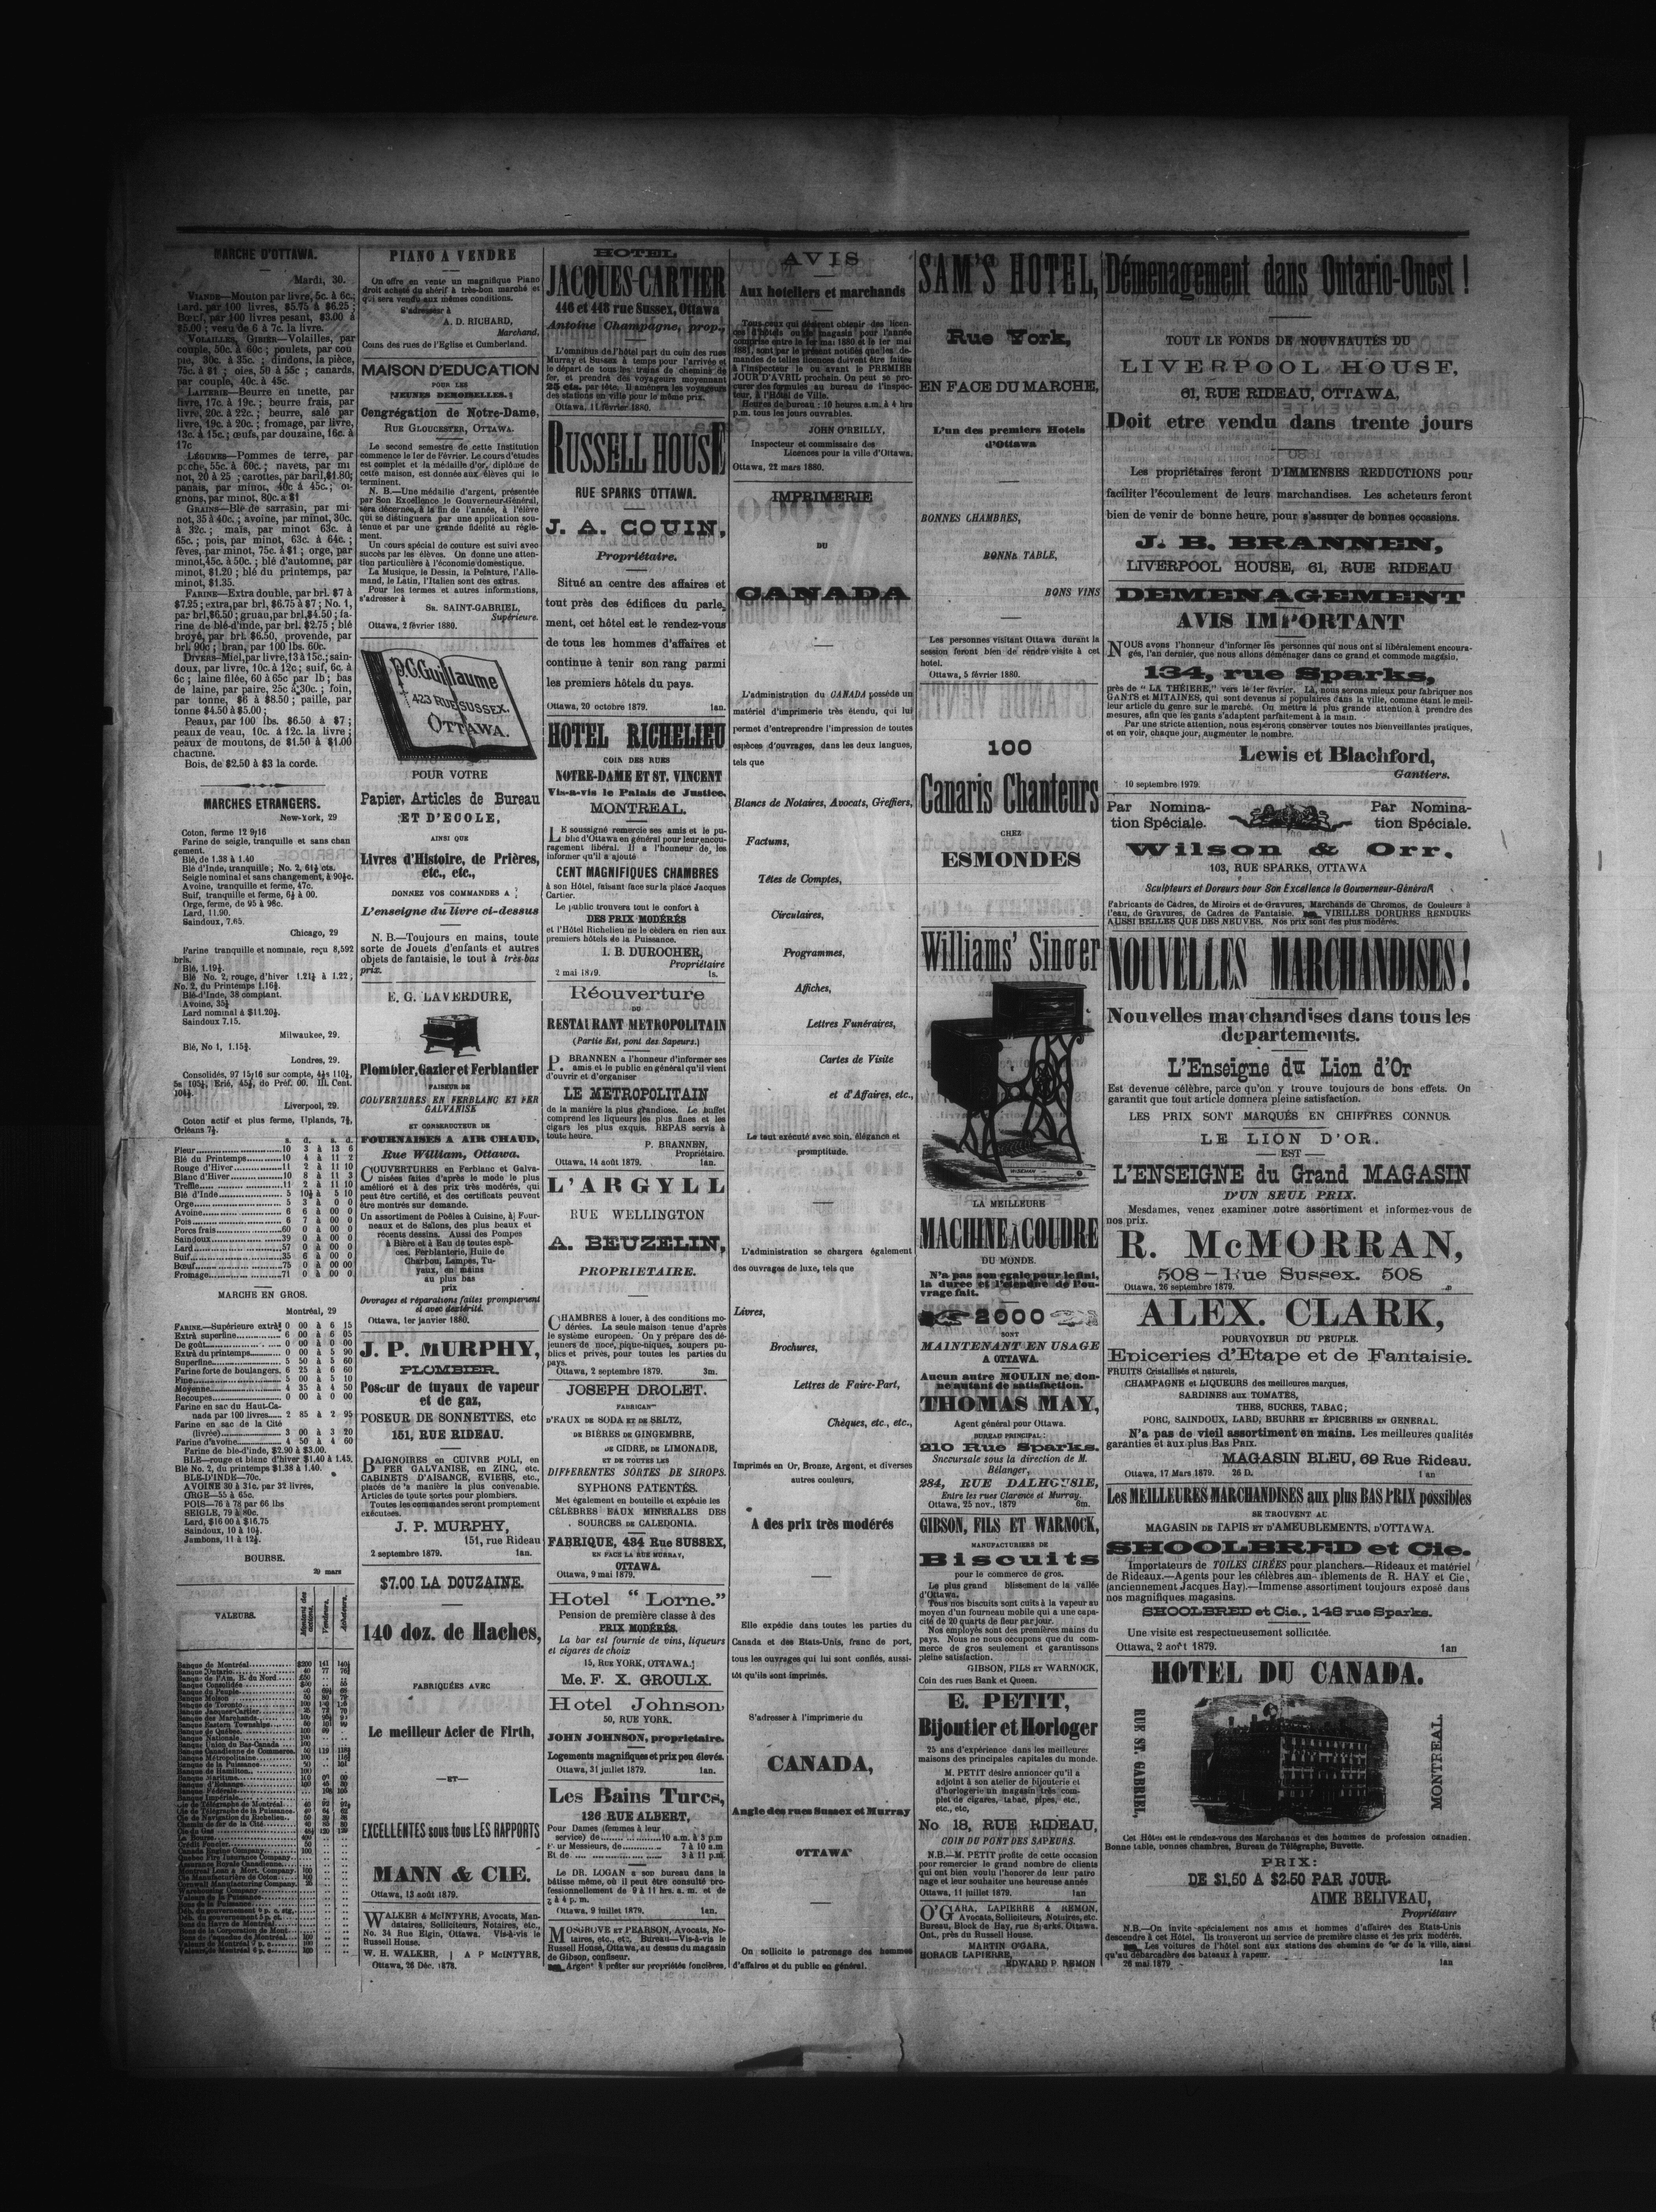 MARCHE D'OTTAWA.
Mardi, 30.
VIANDE—Mouton par livre, 5c. à 6c.;
Lard. par 100 livres, $5.75 à $6.25 ;
Bœuf, par 100 livres pesant, $3.00 à
$5.00 ; veau de 6 à 7c. la livre.
VOLAILLES, GIBIER—Volailles, par
couple, 50c. à 60c ; poulets, par cou
ple, 30c. à 35c. ; dindons, la pièce,
75c. à $1 ; oies, 50 à 55c ; canards,
par couple, 40c. à 45c.
LAITERIE—Beurre en tinette, par
livre, 17c. à 19c. ; beurre frais, par
livre, 20c. à 22c. ; beurre, salé par
livre, 19c. à 20c. ; fromage, par livre,
13c. à 15c. ; œufs, par douzaine, 16c. à
17c
LÉGUMES—Pommes de terre, par
poche, 55c. à 60c. ; navets, par mi
not, 20 à 25 ; carottes, par baril, $1.80;
panais, par minot, 40c à 45c. ; oi-
gnons, par minot, 80c. a $1
GRAINS—Blé de sarrasin, par mi-
not, 35 à 40c. ; avoine, par minot, 30c.
à 32c. ; maïs, par minot 63c. à
65c. ; pois, par minot, 63c. à 64c. ;
fèves, par minot, 75c. à $1 ; orge, par
minot, 45c. à 50c. ; blé d'automne, par
minot, $1.20 ; blé du printemps, par
minot, $1.35.
FARINE—Extra double, par brl. $7 à
$7.25 ; extra, par brl, $6.75 à $7 ; No. 1,
par brl, $6.50 ; gruau, par brl, $4.50 ; fa-
rine de blé-d'inde, par brl. $2.75 ; blé
broyé, par brl. $6.50, provende, par
brl. 90c ; bran, par 100 lbs. 60c.
DIVERS—Miel, par livre, 13 à 15c. ; sain-
doux, par livre, 10c. à 12c ; suif, 6c. à
6c ; laine filée, 60 à 65c par lb ; bas
de laine, par paire, 25c à 30c. ; foin,
par tonne, $6 à $8.50 ; paille, par
tonne $4.50 à $5.00 ;
Peaux, par 100 lbs. $6.50 à $7 ;
peaux de veau, 10c. à 12c. la livre ;
peaux de moutons, de $1.50 à $1.00
chacune.
Bois, de $2.50 à $3 la corde.
MARCHES ETRANGERS.
New-York, 29
Coton, ferme 12 9/16
Farine de seigle, tranquille et sans chan
gement.
Blé, de 1.38 à 1.40
Blé d'Inde, tranquille ; No. 2, 61½ cts.
Seigle nominal et sans changement, à 90½c.
Avoine, tranquille et ferme, 47c.
Suif, tranquille et ferme, 6½ à 00.
Orge, ferme, de 95 à 98c.
Lard, 11.90.
Saindoux, 7.65.
Chicago, 29
Farine tranquille et nominale, reçu 8,592
brls.
Blé, 1.19½.
Blé No. 2, rouge, d'hiver 1.21½ à 1.22 ;
No. 2, du Printemps 1.16½.
Blé-d'Inde, 38 comptant.
Avoine, 35½
Lard nominal à $11.20½.
Saindoux 7.15.
Milwaukee, 29.
Blé, No 1, 1.15¾.
Londres, 29.
Consolidés, 97 15/16 sur compte, 4½s 110½,
5s 105½, Erié, 45½, do Préf. 00. Ill. Cent.
104½.
Liverpool, 29.
Coton actif et plus ferme, Uplands, 7½,
Orléans 7½.
s. d. s. d.
Fleur 10 3 à 13 6
Blé du Printemps 10 4 à 11 2
Rouge d'Hiver 11 2 à 11 10
Blanc d'Hiver 10 8 à 11 3
Treffle 11 2 à 11 10
Blé d'Inde 5 10½ à 5 10
Orge 5 3 à 0 0
Avoine 6 6 à 00 0
Pois 6 7 à 00 0
Porcs frais 60 0 à 00 0
Saindoux 39 0 à 00 0
Lard 57 0 à 00 0
Suif 35 6 à 00 0
Bœuf 75 0 à 00 00
Fromage 71 0 à 00 0
MARCHE EN GROS.
Montréal, 29
FARINE.—Supérieure extra $0 00 à 6 15
Extra superfine 6 00 à 6 05
De goût 0 00 à 0 00
Extra du printemps 0 00 à 5 90
Superfine 5 50 à 5 60
Farine forte de boulangers. 6 25 à 6 60
Fine 5 00 à 5 10
Moyenne 4 35 à 4 50
Recoupes 0 00 à 0 00
Farine en sac du Haut-Ca-
nada par 100 livres 2 85 à 2 95
Farine en sac de la Cité
(livrée) 3 00 à 3 20
Farine d'avoine 4 50 à 4 60
Farine de ble-d'inde, $2.90 à $3.00.
BLE—rouge et blanc d'hiver $1.40 à 1.45.
Blé No. 2, du printemps $1.38 à 1.40.
BLE-D'INDE—70c.
AVOINE 30 à 31c. par 32 livres,
ORGE—55 à 65c.
POIS—76 à 78 par 66 lbs
SEIGLE, 79 à 80c.
Lard, $16 00 à $16.75
Saindoux, 10 à 10½.
Jambons, 11 à 12½.
BOURSE.
29 mars
VALEURS.
Montant des actions.
Vendeurs.
Acheteurs.
Banque de Montréal $200 141 140½
Banque Ontario 40 77 76½
Banque Consolidée
Banque du Peuple
Banque Molson
Banque de Toronto
Banque Jacques-Cartier
Banque des Marchands
Banque Eastern Townships
Banque de Québec
Banque Nationale
Banque Union du Bas-Canada
Banque Canadienne de Commerce
Banque Métropolitaine
Banque de la Puissance
Banque de Hamilton
Banque Maritime
Banque d'Echange
Banque Fédérale
Banque Impériale
Cie de Télégraphe de Montréal
Cie de Télégraphe de la Puissance
Cie de Navigation du Richelieu
Chemin de fer de la Cité
Cie du Gaz
La Bourse
Crédit Foncier
Canada Engine Company
Quebec Fire Insurance Company
Assurance Royale Canadienne
Montreal Loan & Mort. Company
Cie Manufacturière de Coton
Cornwall Manufacturing Company
Warehousing Company
PIANO A VENDRE
On offre en vente un magnifique Piano
droit acheté du shérif à très-bon marché et
qui sera vendu aux mêmes conditions.
S'adresser à
A. D. RICHARD,
Marchand.
Coins des rues de l'Eglise et Cumberland.
MAISON D'EDUCATION
POUR LES
JEUNES DEMOISELLES.
Congrégation de Notre-Dame,
RUE GLOUCESTER, OTTAWA.
Le second semestre de cette Institution
commence le 1er de Février. Le cours d'études
est complet et la médaille d'or, diplôme de
cette maison, est donnée aux élèves qui le
terminent.
N. B.—Une médaille d'argent, présentée
par Son Excellence le Gouverneur-Général,
sera décernée, à la fin de l'année, à l'élève
qui se distinguera par une application sou-
tenue et par une grande fidélité au règle-
ment.
Un cours spécial de couture est suivi avec
succès par les élèves. On donne une atten-
tion particulière à l'économie domestique.
La Musique, le Dessin, la Peinture, l'Alle-
mand, le Latin, l'Italien sont des extras.
Pour les termes et autres informations,
s'adresser à
SR. SAINT-GABRIEL,
Supérieure.
Ottawa, 2 février 1880.
P.C. Guillaume
423 RUE SUSSEX.
OTTAWA.
POUR VOTRE
Papier, Articles de Bureau
ET D'ECOLE,
AINSI QUE
Livres d'Histoire, de Prières,
etc., etc.,
DONNEZ VOS COMMANDES A
L'enseigne du livre ci-dessus
N. B.—Toujours en mains, toute
sorte de Jouets d'enfants et autres
objets de fantaisie, le tout à très-bas
prix.
E. G. LAVERDURE,
Plombier, Gazier et Ferblantier
FAISEUR DE
COUVERTURES EN FERBLANC ET FER
GALVANISE
ET CONSTRUCTEUR DE
FOURNAISES A AIR CHAUD,
Rue William, Ottawa.
COUVERTURES en Ferblanc et Galva-
nisées faites d'après le mode le plus
amélioré et à des prix très modérés, qui
peut être certifié, et des certificats peuvent
être montrés sur demande.
Un assortiment de Poêles à Cuisine, à Four-
neaux et de Salons, des plus beaux et
récents dessins. Aussi des Pompes
à Bière et à Eau de toutes espè-
ces. Ferblanterie, Huile de
Charbon, Lampes, Tu-
yaux, en mains
au plus bas
prix
Ouvrages et réparations faites promptement
et avec dextérité.
Ottawa, 1er janvier 1880.
J. P. MURPHY,
PLOMBIER.
Poseur de tuyaux de vapeur
et de gaz,
POSEUR DE SONNETTES, etc
151, RUE RIDEAU.
BAIGNOIRES en CUIVRE POLI, en
FER GALVANISE, en ZINC, etc.
CABINETS D'AISANCE, EVIERS, etc.,
placés de la manière la plus convenable.
Articles de toute sortes pour plombiers.
Toutes les commandes seront promptement
exécutées.
J. P. MURPHY,
151, rue Rideau
2 septembre 1879. 1an.
$7.00 LA DOUZAINE.
140 doz. de Haches,
FABRIQUÉES AVEC
Le meilleur Acier de Firth,
—ET—
EXCELLENTES sous tous LES RAPPORTS
MANN & CIE.
Ottawa, 13 août 1879.
WALKER & McINTYRE, Avocats, Man-
dataires, Solliciteurs, Notaires, etc.,
No. 34 Rue Elgin, Ottawa. Vis-à-vis le
Russell House.
W. H. WALKER, | A P McINTYRE,
Ottawa, 26 Déc. 1878.
HOTEL
JACQUES-CARTIER
446 et 448 rue Sussex, Ottawa
Antoine Champagne, prop.,
L'omnibus de l'hôtel part du coin des rues
Murray et Sussex à temps pour l'arrivée et
le départ de tous les trains de chemins de
fer, et prendra des voyageurs moyennant
25 cts. par tête. Il amènera les voyageurs
des stations en ville pour le même prix.
Ottawa, 11 février 1880.
RUSSELL HOUSE
RUE SPARKS OTTAWA.
J. A. GOUIN,
Propriétaire.
Situé au centre des affaires et
tout près des édifices du parle-
ment, cet hôtel est le rendez-vous
de tous les hommes d'affaires et
continue à tenir son rang parmi
les premiers hôtels du pays.
Ottawa, 20 octobre 1879. 1an.
HOTEL RICHELIEU
COIN DES RUES
NOTRE-DAME ET ST. VINCENT
Vis-a-vis le Palais de Justice.
MONTREAL.
LE soussigné remercie ses amis et le pu-
blic d'Ottawa en général pour leur encou-
ragement libéral. Il a l'honneur de les
informer qu'il a ajouté
CENT MAGNIFIQUES CHAMBRES
à son Hôtel, faisant face sur la place Jacques
Cartier.
Le public trouvera tout le confort à
DES PRIX MODÉRÉS
et l'Hôtel Richelieu ne le cèdera en rien aux
premiers hôtels de la Puissance.
I. B. DUROCHER,
Propriétaire
2 mai 1879. 1s.
Réouverture
DU
RESTAURANT METROPOLITAIN
(Partie Est, pont des Sapeurs.)
P. BRANNEN a l'honneur d'informer ses
amis et le public en général qu'il vient
d'ouvrir et d'organiser
LE METROPOLITAIN
de la manière la plus grandiose. Le buffet
comprend les liqueurs les plus fines et les
cigars les plus exquis. REPAS servis à
toute heure.
P. BRANNEN,
Propriétaire.
Ottawa, 14 août 1879. 1an.
L'ARGYLL
RUE WELLINGTON
A. BEUZELIN,
PROPRIETAIRE.
CHAMBRES à louer, à des conditions mo-
dérées. La seule maison tenue d'après
le système européen. On y prépare des dé-
jeuners de noce, pique-niques, soupers pu-
blics et privés, pour toutes les parties du
pays.
Ottawa, 2 septembre 1879. 3m.
JOSEPH DROLET.
FABRICANT
D'EAUX DE SODA ET DE SELTZ,
DE BIÈRES DE GINGEMBRE,
DE CIDRE, DE LIMONADE,
ET DE TOUTES LES
DIFFERENTES SORTES DE SIROPS.
SYPHONS PATENTÉS.
Met également en bouteille et expédie les
CÉLÈBRES EAUX MINERALES DES
SOURCES DE CALEDONIA.
FABRIQUE, 434 Rue SUSSEX,
EN FACE LA RUE MURRAY,
OTTAWA.
Ottawa, 9 mai 1879.
Hotel "Lorne."
Pension de première classe à des
PRIX MODÉRÉS.
La bar est fournie de vins, liqueurs
et cigares de choix
15, RUE YORK, OTTAWA.
Me. F. X. GROULX.
Hotel Johnson
50, RUE YORK.
JOHN JOHNSON, proprietaire.
Logements magnifiques et prix peu élevés.
Ottawa, 31 juillet 1879. 1an.
Les Bains Turcs,
126 RUE ALBERT,
Pour Dames (femmes à leur
service) de 10 a.m. à 3 p.m
Pour Messieurs, de 7 à 10 a.m
Et de 3 à 11 p.m.
Le DR. LOGAN a son bureau dans la
bâtisse même, où il peut être consulté pro-
fessionnellement de 9 à 11 hrs. a. m. et de
2 à 4 p. m.
Ottawa, 9 juillet 1879. 1an.
MOSGROVE ET PEARSON, Avocats, No-
taires, etc., etc. Bureau—Vis-à-vis le
Russell House, Ottawa, au dessus du magasin
de Gibson, confiseur.
Argent à prêter sur propriétés foncières.
AVIS
Aux hoteliers et marchands
Tous ceux qui désirent obtenir des licen-
ces d'hôtels ou de magasin pour l'année
comprise entre le 1er mai 1880 et le 1er mai
1881, sont par le présent notifiés que les de-
mandes de telles licences doivent être faites
à l'inspecteur le ou avant le PREMIER
JOUR D'AVRIL prochain. On peut se pro-
curer des formules au bureau de l'inspec-
teur, à l'Hôtel de Ville.
Heures de bureau : 10 heures a.m. à 4 hrs
p.m. tous les jours ouvrables.
JOHN O'REILLY,
Inspecteur et commissaire des
Licences pour la ville d'Ottawa.
Ottawa, 22 mars 1880.
IMPRIMERIE
DU
CANADA
L'administration du CANADA possède un
matériel d'imprimerie très étendu, qui lui
permet d'entreprendre l'impression de toutes
espèces d'ouvrages, dans les deux langues,
tels que
Blancs de Notaires, Avocats, Greffiers,
Factums,
Têtes de Comptes,
Circulaires,
Programmes,
Affiches,
Lettres Funéraires,
Cartes de Visite
et d'Affaires, etc.,
Le tout exécuté avec soin, élégance et
promptitude.
L'administration se chargera également
des ouvrages de luxe, tels que
Livres,
Brochures,
Lettres de Faire-Part,
Chèques, etc., etc.,
Imprimés en Or, Bronze, Argent, et diverses
autres couleurs,
A des prix très modérés
Elle expédie dans toutes les parties du
Canada et des Etats-Unis, franc de port,
tous les ouvrages qui lui sont confiés, aussi-
tôt qu'ils sont imprimés.
S'adresser à l'imprimerie du
CANADA,
Angle des rues Sussex et Murray
OTTAWA
On sollicite le patronage des hommes
d'affaires et du public en général.
SAM'S HOTEL,
Rue York,
EN FACE DU MARCHE,
L'un des premiers Hotels
d'Ottawa
BONNES CHAMBRES,
BONNE TABLE,
BONS VINS
Les personnes visitant Ottawa durant la
session feront bien de rendre visite à cet
hotel.
Ottawa, 5 février 1880.
100
Canaris Chanteurs
CHEZ
ESMONDES
Williams' Singer
LA MEILLEURE
MACHINE À COUDRE
DU MONDE.
N'a pas son egale pour le fini,
la durée et l'étendue de l'ou-
vrage fait.
2000
SONT
MAINTENANT EN USAGE
A OTTAWA.
Aucun autre MOULIN ne don-
ne autant de satisfaction.
THOMAS MAY,
Agent général pour Ottawa.
BUREAU PRINCIPAL :
210 Rue Sparks.
Succursale sous la direction de M.
Bélanger,
284, RUE DALHOUSIE,
Entre les rues Clarence et Murray.
Ottawa, 25 nov., 1879 6m.
GIBSON, FILS ET WARNOCK,
MANUFACTURIERS DE
Biscuits
pour le commerce de gros.
Le plus grand blissement de la vallée
d'Ottawa.
Tous nos biscuits sont cuits à la vapeur au
moyen d'un fourneau mobile qui a une capa-
cité de 20 quarts de fleur par jour.
Nos employés sont des premières mains du
pays. Nous ne nous occupons que du com-
merce de gros seulement et garantissons
pleine satisfaction.
GIBSON, FILS ET WARNOCK,
Coin des rues Bank et Queen.
E. PETIT,
Bijoutier et Horloger
25 ans d'expérience dans les meilleures
maisons des principales capitales du monde.
M. PETIT désire annoncer qu'il a
adjoint à son atelier de bijouterie et
d'horlogerie un magasin très com-
plet de cigares, tabac, pipes, etc.,
etc., etc,
No 18, RUE RIDEAU,
COIN DU PONT DES SAPEURS.
N.B.—M. PETIT profite de cette occasion
pour remercier le grand nombre de clients
qui ont bien voulu l'honorer de leur patro
nage et leur souhaiter une heureuse année
Ottawa, 11 juillet 1879. 1an
O'GARA, LAPIERRE & REMON,
Avocats, Solliciteurs, Notaires, etc.
Bureau, Block de Hay, rue Sparks, Ottawa.
Ont., près du Russell House.
MARTIN O'GARA,
HORACE LAPIERRE,
EDWARD P. REMON
Démenagement dans Ontario-Ouest !
TOUT LE FONDS DE NOUVEAUTÉS DU
LIVERPOOL HOUSE,
61, RUE RIDEAU, OTTAWA,
Doit etre vendu dans trente jours
Les propriétaires feront D'IMMENSES REDUCTIONS pour
faciliter l'écoulement de leurs marchandises. Les acheteurs feront
bien de venir de bonne heure, pour s'assurer de bonnes occasions.
J. B. BRANNEN,
LIVERPOOL HOUSE, 61, RUE RIDEAU
DEMENAGEMENT
AVIS IMPORTANT
NOUS avons l'honneur d'informer les personnes qui nous ont si libéralement encoura-
gés, l'an dernier, que nous allons déménager dans ce grand et commode magasin,
134, rue Sparks,
près de " LA THÉIERE," vers le 1er février. Là, nous serons mieux pour fabriquer nos
GANTS et MITAINES, qui sont devenus si populaires dans la ville, comme étant le meil-
leur article du genre, sur le marché. On mettra la plus grande attention à prendre des
mesures, afin que les gants s'adaptent parfaitement à la main.
Par une stricte attention, nous espérons conserver toutes nos bienveillantes pratiques,
et en voir, chaque jour, augmenter le nombre.
Lewis et Blachford,
Gantiers.
10 septembre 1979.
Par Nomina-
tion Spéciale.
Par Nomina-
tion Spéciale.
Wilson & Orr.
103, RUE SPARKS, OTTAWA
Sculpteurs et Doreurs pour Son Excellence le Gouverneur-Général
Fabricants de Cadres, de Miroirs et de Gravures, Marchands de Chromos, de Couleurs à
l'eau, de Gravures, de Cadres de Fantaisie. VIEILLES DORURES RENDUES
AUSSI BELLES QUE DES NEUVES. Nos prix sont des plus modérés.
NOUVELLES MARCHANDISES!
Nouvelles marchandises dans tous les
departements.
L'Enseigne du Lion d'Or
Est devenue célèbre, parce qu'on y trouve toujours de bons effets. On
garantit que tout article donnera pleine satisfaction.
LES PRIX SONT MARQUÉS EN CHIFFRES CONNUS.
LE LION D'OR.
— EST —
L'ENSEIGNE du Grand MAGASIN
D'UN SEUL PRIX.
Mesdames, venez examiner notre assortiment et informez-vous de
nos prix.
R. McMORRAN,
508—Rue Sussex. 508
Ottawa, 26 septembre 1879.
ALEX. CLARK,
POURVOYEUR DU PEUPLE.
Epiceries d'Etape et de Fantaisie.
FRUITS Cristallisés et naturels,
CHAMPAGNE et LIQUEURS des meilleures marques,
SARDINES aux TOMATES,
THES, SUCRES, TABAC;
PORC, SAINDOUX, LARD, BEURRE ET ÉPICERIES EN GENERAL.
N'a pas de vieil assortiment en mains. Les meilleures qualités
garanties et aux plus BAS PRIX.
MAGASIN BLEU, 69 Rue Rideau.
Ottawa, 17 Mars 1879. 26 D. 1 an
Les MEILLEURES MARCHANDISES aux plus BAS PRIX possibles
SE TROUVENT AU
MAGASIN DE TAPIS ET D'AMEUBLEMENTS, D'OTTAWA.
SHOOLBRED et Cie.
Importateurs de TOILES CIRÉES pour planchers.—Rideaux et matériel
de Rideaux.—Agents pour les célèbres ameublements de R. HAY et Cie,
(anciennement Jacques Hay).—Immense assortiment toujours exposé dans
nos magnifiques magasins.
SHOOLBRED et Cie., 148 rue Sparks.
Une visite est respectueusement sollicitée.
Ottawa, 2 août 1879. 1an
HOTEL DU CANADA.
RUE ST. GABRIEL,
MONTREAL.
Cet Hôtel est le rendez-vous des Marchands et des hommes de profession canadien.
Bonne table, bonnes chambres, Bureau de Télégraphe, Buvette.
PRIX:
DE $1.50 A $2.50 PAR JOUR.
AIME BELIVEAU,
Propriétaire
N.B.—On invite spécialement nos amis et hommes d'affaires des Etats-Unis
descendre à cet Hôtel. Ils trouveront un service de première classe et des prix modérés.
Les voitures de l'hôtel sont aux stations des chemins de fer de la ville, ainsi
qu'au débarcadère des bateaux à vapeur.
26 mai 1879 1an